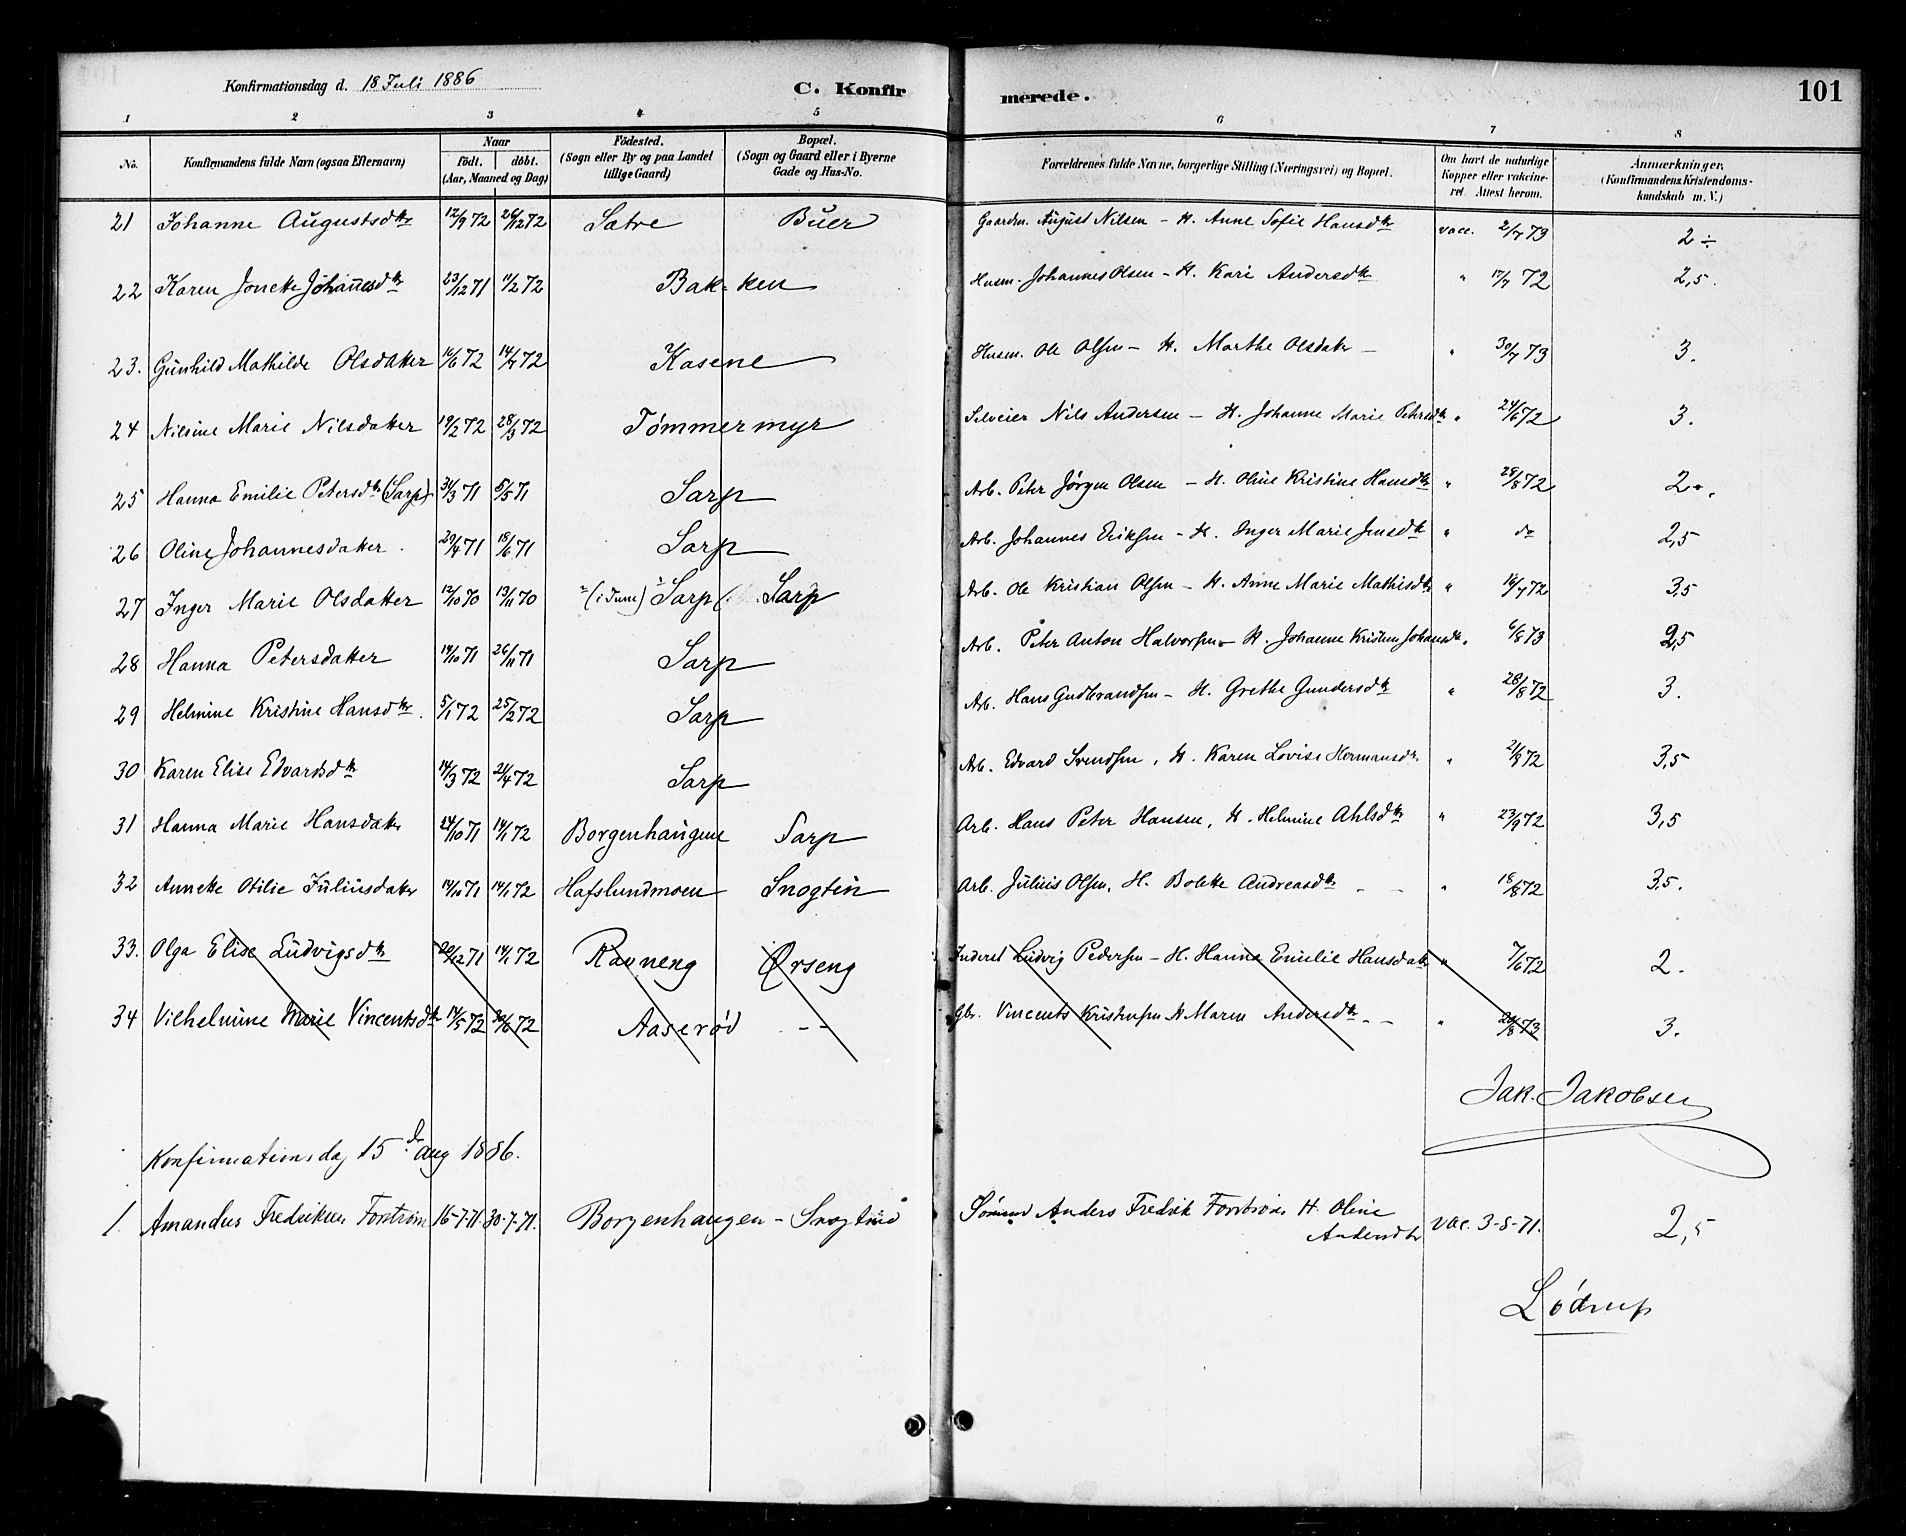 Konfirmationsdag d. 18 Juli 1886 C. Konfirmerede. 101
1 2 3 4 5 6 7 8
No. Konfirmandens fulde Navn (ogsaa Efternavn) Naar födt. döbt. (Aar, Maaned og Dag) Födested. (Sogn eller By og paa Landet tillige Gaard) Bopæl. (Sogn og Gaard eller i Byerne Gade og Hus-No. Forældrenes fulde Navne, borgerlige Stilling (Næringsvei) og Bopæl. Om havt de naturlige Kopper eller vakcineret. Attest herom. Anmærkninger, (Konfirmandens Kristendomskundskab m. V.)
21 Johanne Augustsdtr 12/9 72 26/12 72 Satre Buer Gaardm. August Nilsen - H. Anne Sofie Hansdtr vacc. 2/7 73 2 ÷
22 Karen Josette Johannesdtr 23/12 71 11/2 72 Bakken Husm. Johannes Olsen - H. Kari Andersdtr " 17/7 72 2,5.
23. Gunhild Mathilde Olsdatter 16/6 72 14/7 72 Kasene Husm. Ole Olsen - H. Marthe Olsdatr - " 30/7 73 3.
24 Nilsine Marie Nilsdatter 19/2 72 28/3 72 Tømmermyr Selveier Nils Andersen - H. Johanne Marie Petersdtr " 24/6 72 3.
25 Hanna Emilie Petersdtr (Sarp) 31/3 71 5/5 71 Sarp Arb. Peter Jørgen Olsen - H. Oline Kristine Hansdtr " 28/8 72 2
26 Oline Johannesdatter. 29/4 71 18/6 71 Sarp Arb. Johannes Eriksen - H. Inger Marie Jensdtr " do 2,5
27 Inger Marie Olsdatter 12/10 70 13/11 70 (i Tune) Sarp Sarp Arb. Ole Kristian Olsen - H. Anne Marie Mathisdtr " 16/7 72 3,5
28 Hanna Petersdatter 14/10 71 26/11 71 Sarp Arb. Peter Anton Halvorsen - H. Johanne Kristine Johansdtr. 6/8 73 2,5
29 Helmine Kristine Hansdtr. 5/1 72 25/2 72 Sarp Arb. Hans Gudbrandsen - H. Grethe Gundersdtr " 28/8 72 3.
30 Karen Elise Edvardsdtr 14/3 72 21/4 72 Sarp Arb. Edvard Svendsen, H. Karen Lovise Hermansdtr " 21/8 72 3,5
31 Hanna Marie Hansdatr 24/10 71 14/1 72 Borgenhaugen Sarp Arb. Hans Peter Hansen, H. Helmine Ahlsdtr " 23/9 72 3,5
32 Annette Otilie Juliusdatr 14/10 71 14/1 72 Hafslundmoen Snogtin Arb. Julius Olsen, H. Bolette Andreasdtr - - " 18/8 72 3,5.
33. Olga Elise Ludvigsdtr 20/12 71 14/1 72 Ravneng Ørseng Inderst Ludvig Pedersen - H. Hanna Emilie Hansdatr " 7/6 72 2.
34 Vilhelmine Marie Vincentsdtr 14/5 72 30/6 72 Aaserød - - Gbr. Vincents Kristensen H Maren Andersdtr - - " 20/8 73 3.
Jak. Jakobsen
Konfirmationsdag 15 d. Aug 1886.
1. Amandus Fredriksen Forstrøm 16-7-71. 30-7-71. Borgenhaugen - Snogtind Sömand Anders Fredrik Forstrøm H. Oline vac. 3-8-71. 2,5
Lödrup